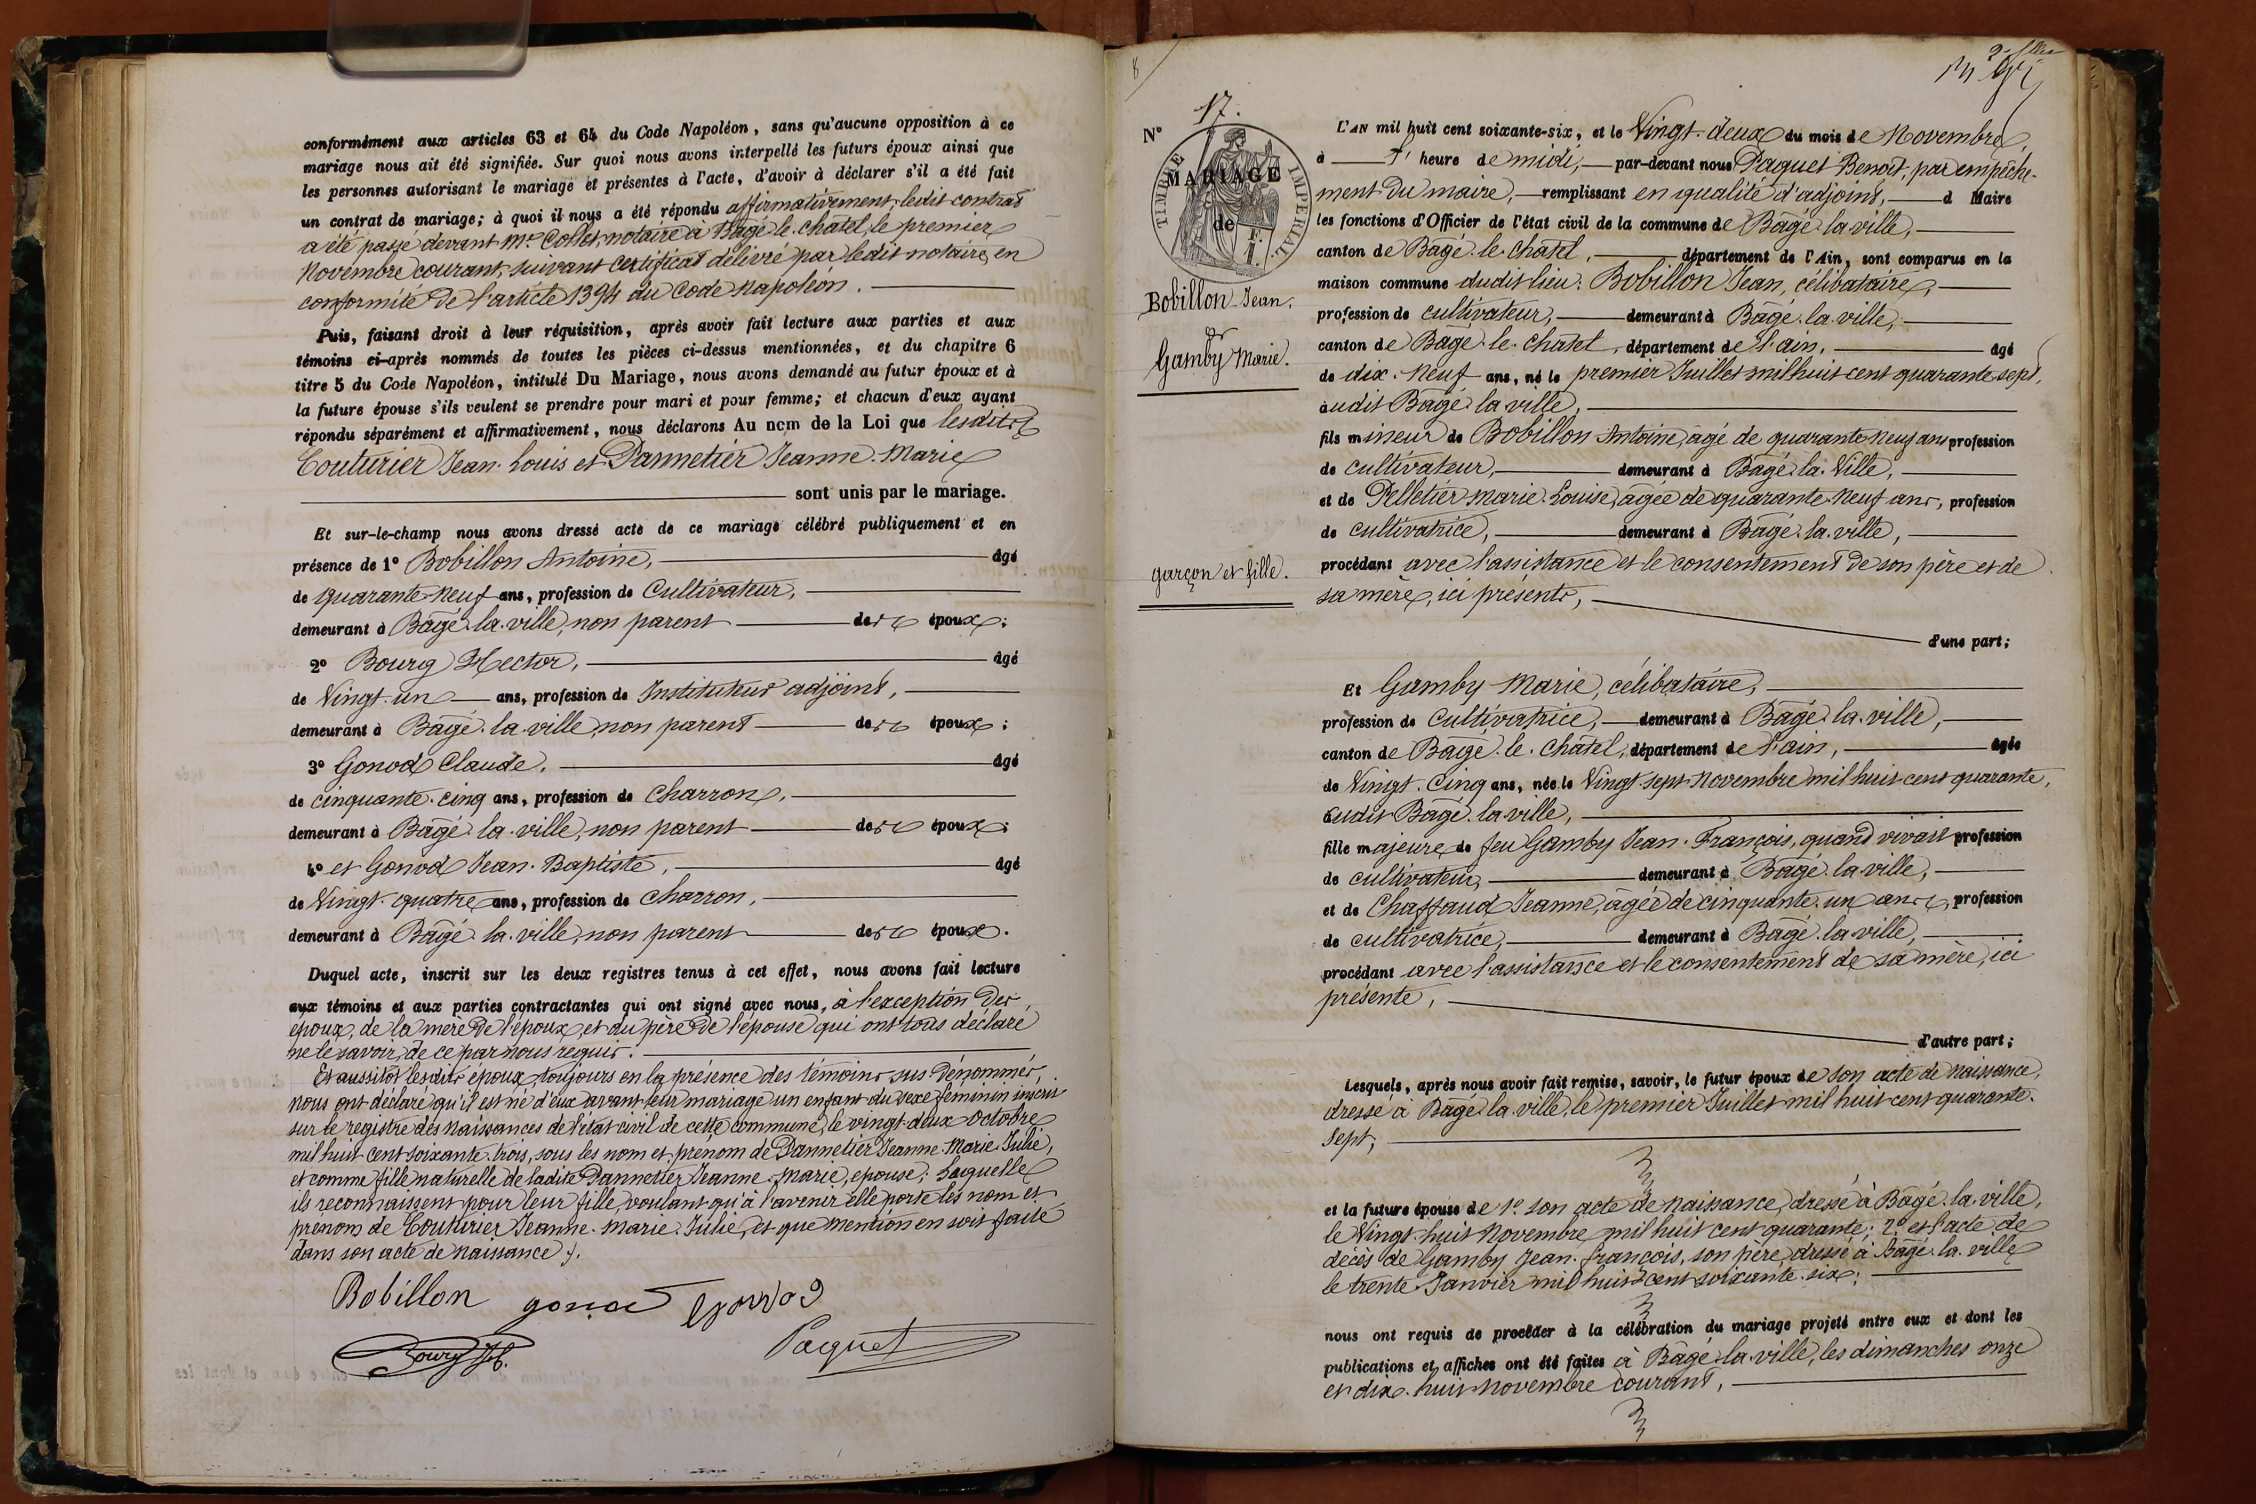 conformément aux articles 63 et 64 du Code Napoléon, sans qu'aucune opposition à ce
mariage nous ait été signifiée. Sur quoi nous avons interpellé les futurs époux ainsi que
les personnes autorisant le mariage et présentes à l'acte, d'avoir à déclarer s'il a été fait
un contrat de mariage; à quoi il nous a été répondu affirmativement, ledit contrat
a été passé devant Me Collet, notaire à Bâgé-le-châtel, le premier
Novembre courant, suivant certificat délivré par ledit notaire, en
conformité de l'article 1394 du Code Napoléon.
Puis, faisant droit à leur réquisition, après avoir fait lecture aux parties et aux
témoins ci-après nommés de toutes les pièces ci-dessus mentionnées, et du chapitre 6
titre 5 du Code Napoléon, intitulé Du Mariage, nous avons demandé au futur époux et à
la future épouse s'ils veulent se prendre pour mari et pour femme; et chacun d'eux ayant
répondu séparément et affirmativement, nous déclarons Au nom de la Loi que lesdits
Couturier Jean-Louis et Pannetier Jeanne-Marie
sont unis par le mariage.
Et sur-le-champ nous avons dressé acte de ce mariage célébré publiquement et en
présence de 1° Bobillon Antoine, âgé
de quarante-neuf ans, profession de Cultivateur,
demeurant à Bâgé-la-ville, non parent des époux;
2° Bourg Hector, âgé
de Vingt-un ans, profession de Instituteur adjoint,
demeurant à Bâgé-la-ville, non parent des époux;
3° Gonod Claude, âgé
de cinquante-cinq ans, profession de Charron,
demeurant à Bâgé-la-ville, non parent des époux;
4° et Gonod Jean-Baptiste, âgé
de Vingt-quatre ans, profession de Charron,
demeurant à Bâgé-la-ville, non parent des époux.
Duquel acte, inscrit sur les deux registres tenus à cet effet, nous avons fait lecture
aux témoins et aux parties contractantes qui ont signé avec nous, à l'exception des
époux, de la mère de l'époux, et du père de l'épouse qui ont tous déclaré
ne le savoir, de ce par nous requis.
Et aussitôt lesdits époux, toujours en la présence des témoins sus dénommés,
nous ont déclaré qu'il est né d'eux avant leur mariage un enfant du sexe féminin inscrit
sur le registre des naissances de l'état civil de cette commune, le vingt-deux Octobre
mil huit cent soixante-trois, sous les nom et prénom de Pannetier Jeanne-Marie-Julie,
et comme fille naturelle de ladite Pannetier Jeanne-Marie, épouse; Laquelle
ils reconnaissent pour leur fille, voulant qu'à l'avenir elle porte les nom et
prénom de Couturier Jeanne-Marie-Julie, et que mention en soit faite
dans son acte de naissance.
Bobillon gonod gonod
Bourg H. Paquet
8
N° 17.
TIMBRE IMPÉRIAL
MARIAGE
de
Bobillon Jean.
et
Gamby Marie.
garçon et fille.
L'AN mil huit cent soixante-six, et le Vingt-deux du mois de Novembre,
à l' heure de midi, par-devant nous Paquet Benoit, par empêche-
ment du maire, remplissant en qualité d'adjoint, d Maire
les fonctions d'Officier de l'état civil de la commune de Bâgé-la-ville,
canton de Bâgé-le-châtel, département de l'Ain, sont comparus en la
maison commune dudit lieu: Bobillon Jean, célibataire,
profession de cultivateur, demeurant à Bâgé-la-ville,
canton de Bâgé-le-châtel, département de l'ain, âgé
de dix-neuf ans, né le premier Juillet mil huit cent quarante-sept,
audit Bâgé-la-ville,
fils mineur de Bobillon Antoine, âgé de quarante-neuf ans profession
de cultivateur, demeurant à Bâgé-la-Ville,
et de Pelletier Marie-Louise, âgée de quarante-neuf ans, profession
de cultivatrice, demeurant à Bâgé-la-ville,
procédant avec l'assistance et le consentement de son père et de
sa mère, ici présents,
d'une part;
Et Gamby Marie, célibataire,
profession de Cultivatrice, demeurant à Bâgé-la-ville,
canton de Bâgé-le-châtel, département de l'ain, âgée
de Vingt-Cinq ans, née le Vingt-sept Novembre mil huit cent quarante,
audit Bâgé-la-ville,
fille majeure de feu Gamby Jean-François, quand vivait profession
de cultivateur, demeurant à Bâgé-la-ville,
et de Chaffaud Jeanne, âgée de cinquante-un ans, profession
de cultivatrice, demeurant à Bâgé-la-ville,
procédant avec l'assistance et le consentement de sa mère, ici
présente,
d'autre part;
Lesquels, après nous avoir fait remise, savoir, le futur époux de son acte de naissance,
dressé à Bâgé-la-ville, le premier Juillet mil huit cent quarante-
sept,
et la future épouse de 1° son acte de naissance, dressé à Bâgé-la-ville,
le Vingt-huit Novembre mil huit cent quarante; 2° et l'acte de
décès de Gamby Jean-françois, son père, dressé à Bâgé-la-ville
le trente Janvier mil huit cent soixante-six;
nous ont requis de procéder à la célébration du mariage projeté entre eux et dont les
publications et affiches ont été faites à Bâgé-la-ville, les dimanches onze
et dix-huit Novembre courant,